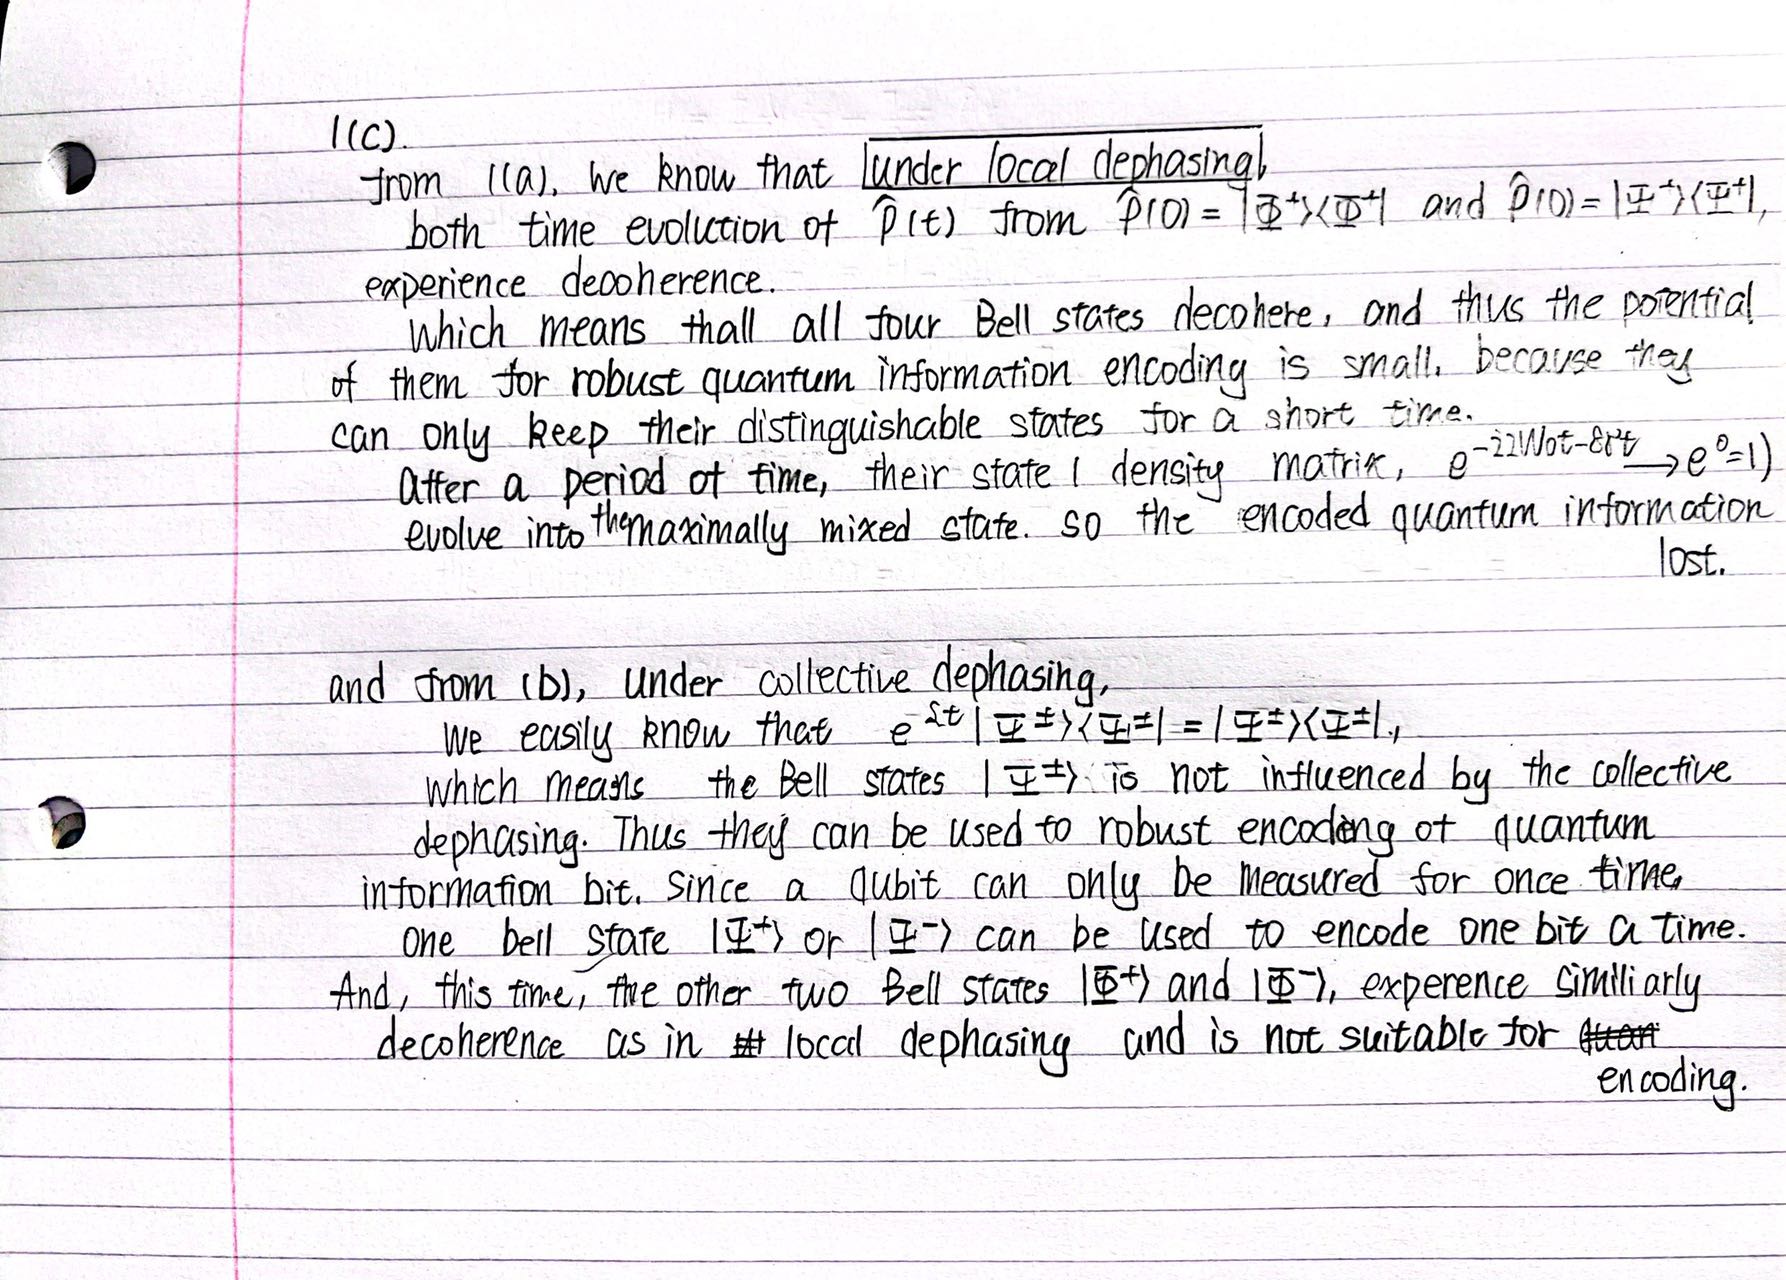 1(c).
from 1(a), we know that under local dephasing,
both time evolution of ρ̂(t) from ρ̂(0) = |Φ⁺⟩⟨Φ⁺| and ρ̂(0) = |Ψ⁺⟩⟨Ψ⁺|,
experience decoherence.
Which means thall all four Bell states decohere, and thus the potential
of them for robust quantum information encoding is small. because they
can only keep their distinguishable states for a short time.
After a period of time, their state ( density matrix, e^{-i2W₀t-8Γt} → e⁰=1)
evolve into the maximally mixed state. so the encoded quantum information
lost.
and from (b), under collective dephasing,
We easily know that e^{ℒt} |Ψ^±⟩⟨Ψ^±| = |Ψ^±⟩⟨Ψ^±|.,
which means the Bell states |Ψ^±⟩ is not influenced by the collective
dephasing. Thus they can be used to robust encoding of quantum
information bit. Since a qubit can only be measured for once time,
one bell state |Ψ⁺⟩ or |Ψ⁻⟩ can be used to encode one bit a time.
And, this time, the other two Bell states |Φ⁺⟩ and |Φ⁻⟩, experence similiarly
decoherence as in local dephasing and is not suitable for
encoding.